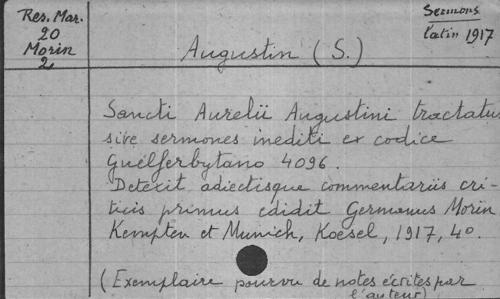 Res. Mar.
20
Morin
2
Sermons
latin 1917
Augustin (S.)
Sancti Aurelii Augustini tractatus
sive sermones inediti ex codice
Guelferbytano 4096.
Detexit adiectisque commentariis cri-
ticis primus edidit Germanus Morin
Kempten et Munich, Koesel, 1917, 4o.
(Exemplaire pourvu de notes écrites par
l'auteur)